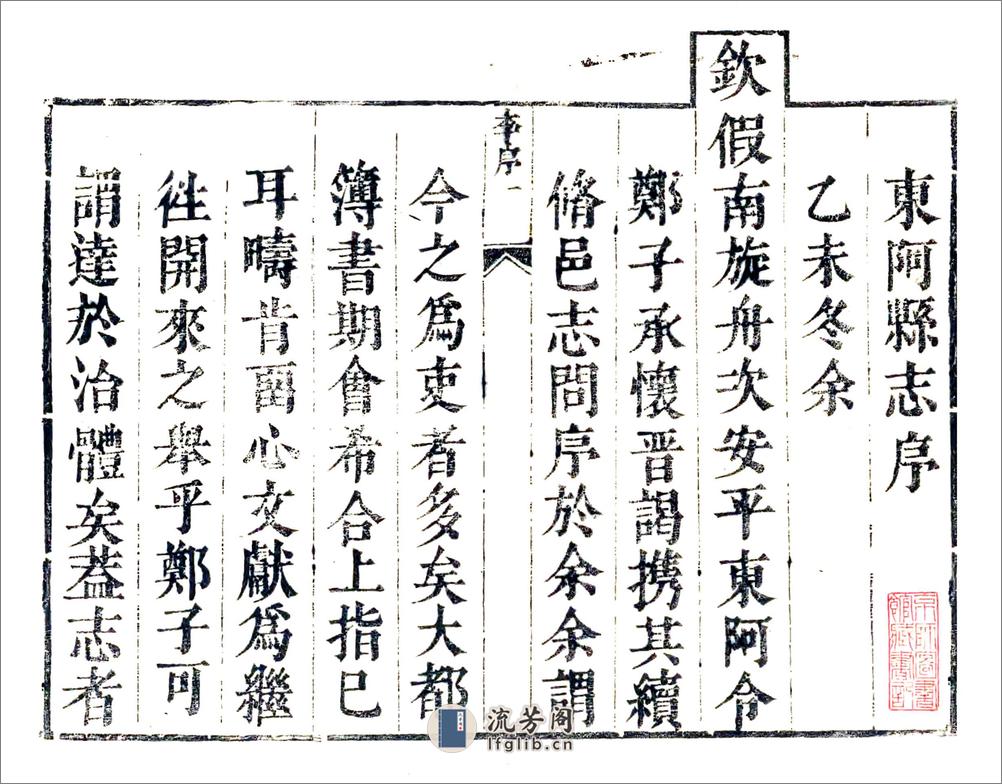 東阿縣志序
乙未冬余
欽假南旋舟次安平東阿令
鄭子承懷晋謁携其續
脩邑志問序於余余謂
李序 一
今之爲吏者多矣大都
簿書期會希合上指已
耳疇肯畱心文獻爲繼
徃開來之舉乎鄭子可
謂達於治體矣葢志者
京師圖書
館藏書記
流芳阁
lfglib.cn